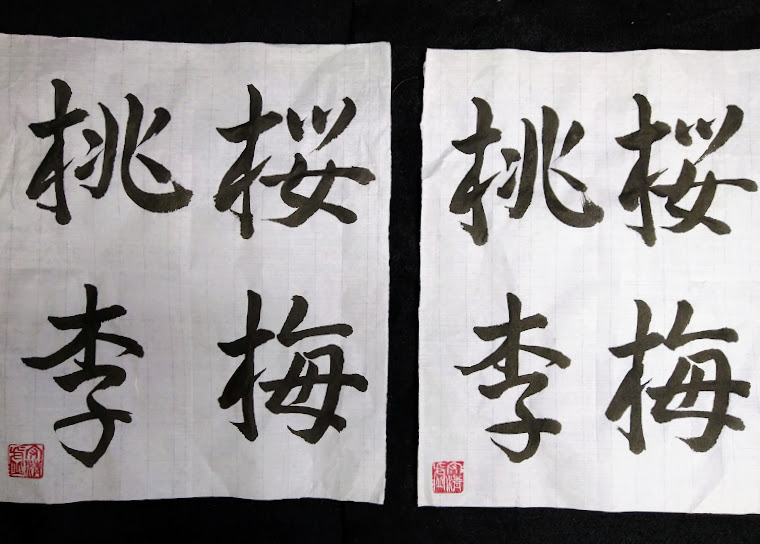 桜梅
桃李
桜梅
桃李